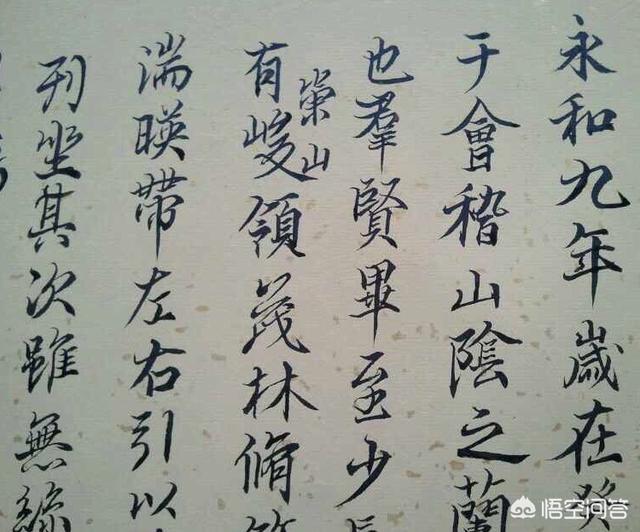 永和九年歲在癸
于會稽山陰之蘭
也羣賢畢至少長
有崇山峻領茂林脩竹
湍暎帶左右引以
列坐其次雖無絲
悟空问答